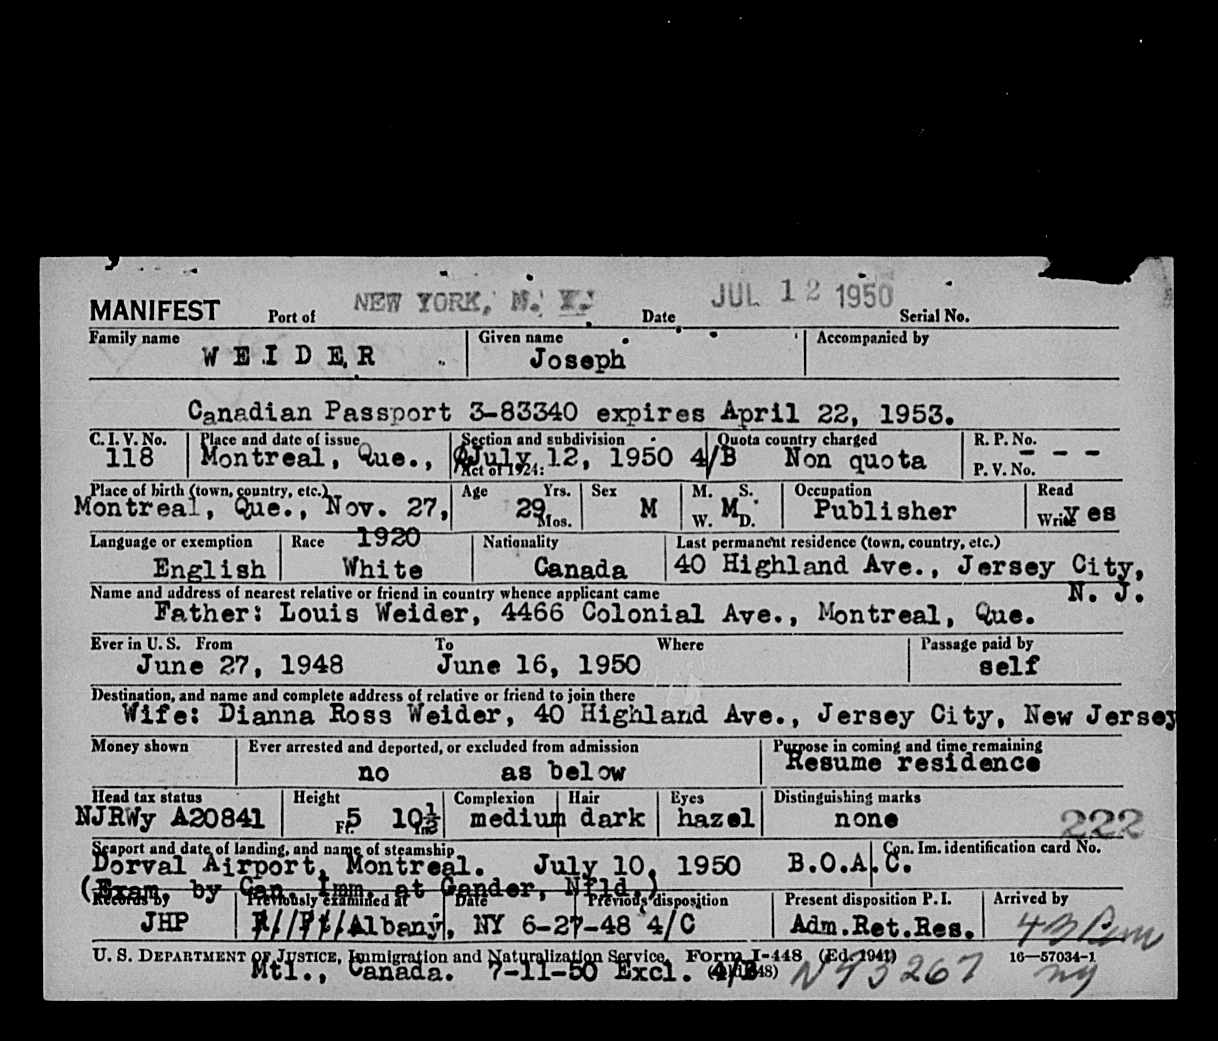 MANIFEST Port of NEW YORK, N. Y. Date JUL 12 1950 Serial No.
Family name Given name Accompanied by
WEIDER Joseph
Canadian Passport 3-83340 expires April 22, 1953.
C. I. V. No. Place and date of issue Section and subdivision Quota country charged R. P. No.
118 Montreal, Que., July 12, 1950 4/B Non quota - - -
Act of 1924: P. V. No.
Place of birth (town, country, etc.) Age Yrs. Sex M. S. Occupation Read
Montreal, Que., Nov. 27, 29 M M Publisher Yes
Mos. W. D. Write
1920
Language or exemption Race Nationality Last permanent residence (town, country, etc.)
English White Canada 40 Highland Ave., Jersey City,
Name and address of nearest relative or friend in country whence applicant came N. J.
Father: Louis Weider, 4466 Colonial Ave., Montreal, Que.
Ever in U. S. From To Where Passage paid by
June 27, 1948 June 16, 1950 self
Destination, and name and complete address of relative or friend to join there
Wife: Dianna Ross Weider, 40 Highland Ave., Jersey City, New Jersey
Money shown Ever arrested and deported, or excluded from admission Purpose in coming and time remaining
no as below Resume residence
Head tax status Height Complexion Hair Eyes Distinguishing marks
NJRWy A20841 Ft. 5 10½ medium dark hazel none 222
Seaport and date of landing, and name of steamship Con. Im. identification card No.
Dorval Airport, Montreal. July 10, 1950 B.O.A.C.
(Exam. by Can. Imm. at Gander, Nfld.)
Records by Previously examined at Date Previous disposition Present disposition P. I. Arrived by
JHP Albany, NY 6-27-48 4/C Adm.Ret.Res.
U. S. DEPARTMENT OF JUSTICE, Immigration and Naturalization Service, Form I-448 (Ed. 1941) 16—57034-1
Mtl., Canada. 7-11-50 Excl. 4/B N43267 ny